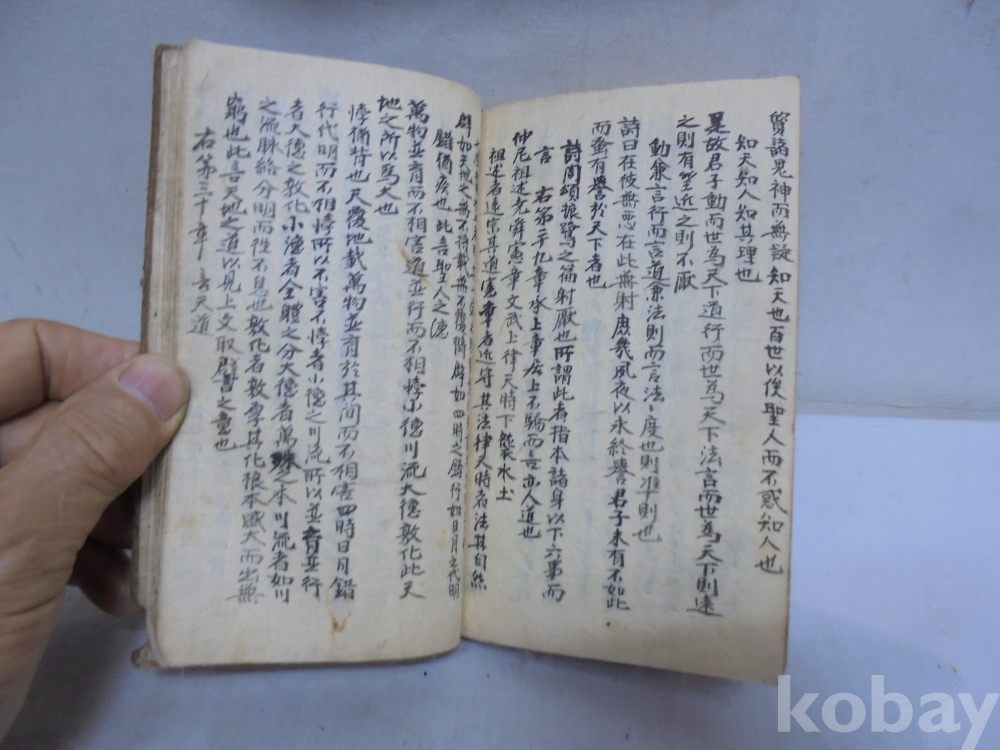 質諸鬼神而無疑知天也百世以俟聖人而不惑知人也
知天知人知其理也
是故君子動而世為天下道行而世為天下法言而世為天下則遠
之則有望近之則不厭
動兼言行而言道兼法則而言法〻度也則準則也
詩曰在彼無惡在此無射庶幾夙夜以永終譽君子未有不如此
而蚤有譽於天下者也
詩周頌振鷺之篇射厭也所謂此者指本諸身以下六事而
言 右第二十九章承上章居上不驕而言亦人道也
仲尼祖述堯舜憲章文武上律天時下襲水土
祖述者遠宗其道憲章者近守其法律天時者法其自然
辟如天地之無不持載無不覆幬辟如四時之錯行如日月之代明
錯猶迭也此言聖人之德
萬物並育而不相害道並行而不相悖小德川流大德敦化此天
地之所以為大也
悖猶背也天覆地載萬物並育於其間而不相害四時日月錯
行代明而不相悖所以不害不悖者小德之川流所以並育並行
者大德之敦化小德者全體之分大德者萬殊之本川流者如川
之流脉絡分明而性不息也敦化者敦厚其化根本盛大而出無
窮也此言天地之道以見上文取辟之意也
右第三十章 言天道
kobay